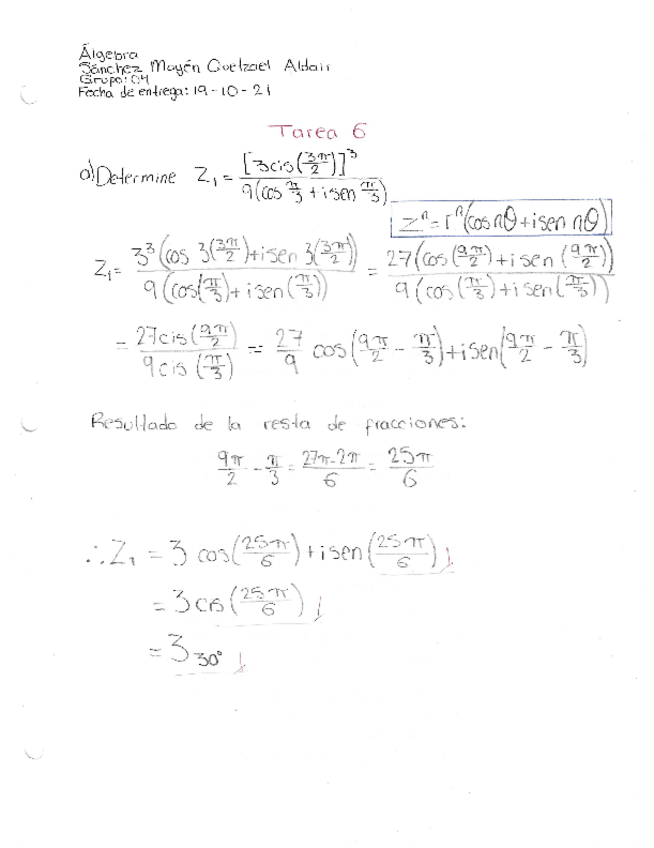 Álgebra
Sánchez Mayén Quetzael Aldair
Grupo: 04
Fecha de entrega: 19-10-21
Tarea 6
a) Determine Z₁ = [3cis(3π/2)]³ / 9(cos π/3 + i sen π/3)
Zⁿ = rⁿ(cos nθ + i sen nθ)
Z₁ = 3³(cos 3(3π/2) + i sen 3(3π/2)) / 9(cos(π/3) + i sen(π/3)) = 27(cos(9π/2) + i sen(9π/2)) / 9(cos(π/3) + i sen(π/3))
= 27cis(9π/2) / 9cis(π/3) = 27/9 cos(9π/2 - π/3) + i sen(9π/2 - π/3)
Resultado de la resta de fracciones:
9π/2 - π/3 = 27π-2π/6 = 25π/6
∴ Z₁ = 3 cos(25π/6) + i sen(25π/6)
= 3 cis(25π/6)
= 3 30°